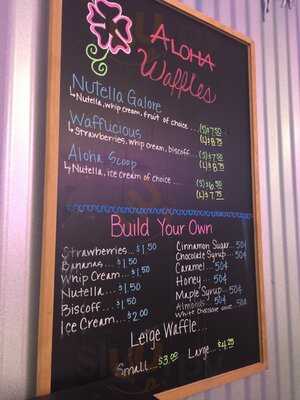 Aloha
Waffles
Nutella Galore
Nutella, whip cream, fruit of choice... (S) $7.50
(L) $8.75
Wafflicious
Strawberries, whip cream, biscoff... (S) $7.50
(L) $8.75
Aloha Scoop
Nutella, ice cream of choice... (S) $6.50
(L) $7.75
Build Your Own
Strawberries... $1.50
Bananas... $1.50
Whip Cream... $1.50
Nutella... $1.50
Biscoff... $1.50
Ice Cream... $2.00
Cinnamon Sugar... 50¢
Chocolate Syrup... 50¢
Caramel... 50¢
Honey... 50¢
Maple Syrup... 50¢
Almonds... 50¢
White Chocolate 50¢
Leige Waffle...
Small... $3.00 Large... $4.25